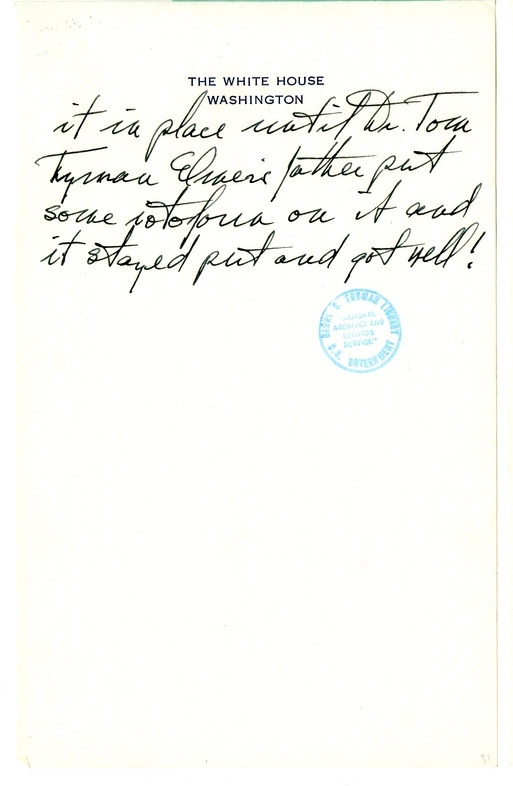 THE WHITE HOUSE
WASHINGTON
it in place until Dr. Tom
Twyman Elmer's father put
some iodoform on it and
it stayed put and got well!
HARRY S. TRUMAN LIBRARY
"NATIONAL
ARCHIVES AND
RECORDS
SERVICE"
U.S. GOVERNMENT